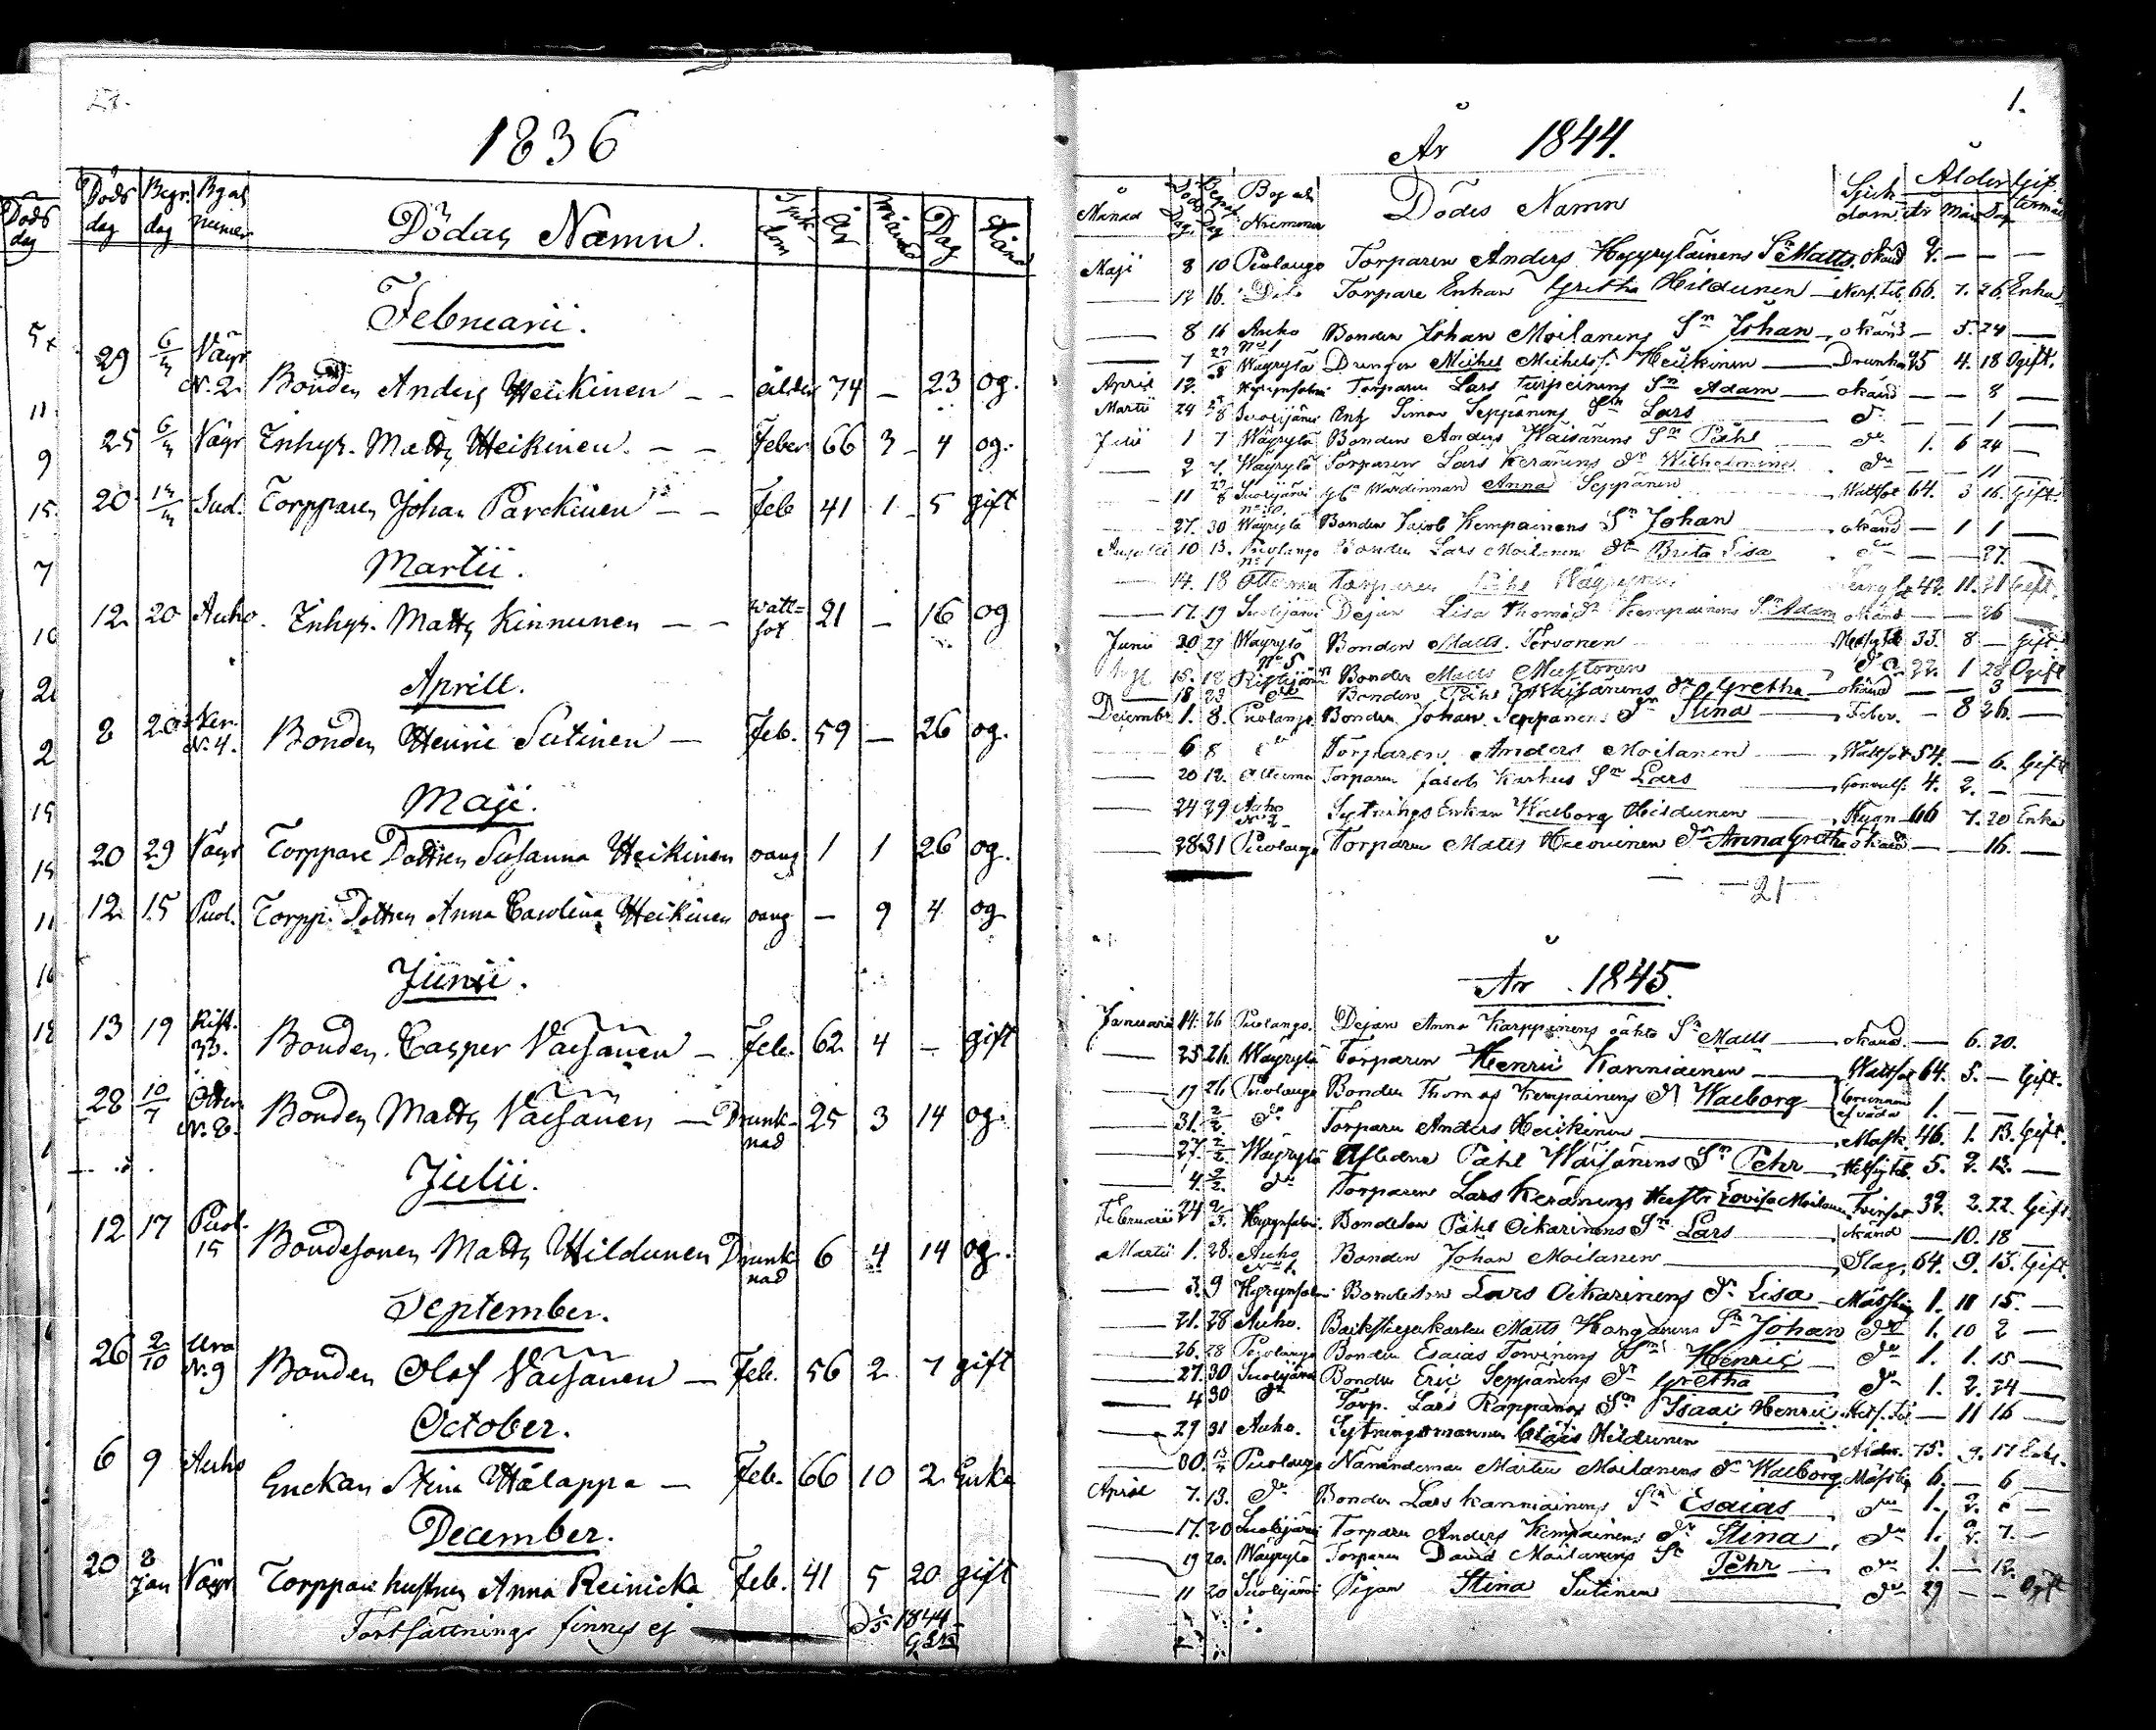 27.
1836
Döds dag
Döds dag Begr. dag Byas numer Dödas Namn. Sjukdom År Månad Dag Stånd
Februarii.
29 6/3 Väyr N. 2. Bonden Anders Heikinen — — ålder 74 — 23 og.
25 6/3 Väyr Inhys. Matts Heikinen. — — Feber 66 3 4 og.
20 Torpparen Johan Parckinen — — Feb 41 1 5 gift
Martii.
12. 20 Auho. Inhys. Matts Kinnunen — — watt=sot 21 — 16 og
Aprill.
8 20 N. 4. Bonden Henric Sutinen — Feb. 59 — 26 og.
Maji.
20 29 Väyr Torppare Dottren Susanna Heikinen oang 1 1 26 og.
12. 15 Puol. Torpp. Dottren Anna Carolina Heikinen oang — 9 4 og
Junii.
13 19 Rist. 33. Bonden Casper Väisänen — Feb. 62 4 — gift
28 10/7 Otter. N. 8. Bonden Matts Väisänen — Drunknad 25 3 14 og.
Julii.
12 17 Puol. 15 Bondesonen Matts Hildunen Drunknad 6 4 14 og.
September.
26 2/10 Ura N. 9 Bonden Olof Väisänen — Feb. 56 2 7 gift
October.
6 9 Auho Enckan Stina Hälappa — Feb. 66 10 2 Enka
December.
20 8 Jan Väyr Torppare hustrun Anna Reinicka Feb. 41 5 20 gift
Fortsättnings finnes ej 1844
1.
År 1844.
Månad Döds Dag Begraf Dag Byab Nummer Dödes Namn Sjukdom Ålder År Mån Dag Giftermål
Maji 8 10 Puolango Torparen Anders Hyyryläinens Sn Matts. okänd 2. — — —
12 16. Dito Torpare Enkan Gretha Hildunen — Nerf. Feb. 66. 7. 26. Enka
8 16 Auho No 1 Bonden Johan Moilanens Sn Johan — okänd — 5. 24 —
7 Wäyrylä Drengen Michel Michelss. Heikinen — Drunkn. 4. 18 Ogift.
April 12. Hyrynsalmi Torparen Lars Turpeinens Sn Adam — okänd — — 8 —
Martii 24 Suolijärvi Inh. Simon Seppänens Sn Lars — do — — 1 —
Julii 1 7 Wäyrylä Bonden Anders Wäisänens Sn Påhl — do 1. 6 24 —
2 7. Wäyrylä Torparen Lars Keränens Dr Wilhelmina. do — — 11 —
11 Suolijärvi Anna Seppänen Wattsot 64. 3 16. Gift.
27. 30 Wäyrylä Bonden Jacob Kempainens Sn Johan — okänd — 1 1 —
Augusti 10 13. Puolango Bonden Lars Moilanens Dr Brita Lisa do — — 27. —
14. 18 Otterma Torparen Påhl 42. 11. 21 Gift
17. 19 Suolijärvi Dejan Lisa Thomæ Dr Kempainens Sn Adam okänd — — 26 —
Junii 20 29 Wäyrylä Bonden Matts. Tervonen 33. 8 — Gift.
15. 18 No 5 Ristijärvi Bonden Matts Mustonen do 22. 1 28 Ogift
18 23 do Bonden Påhl Dr Gretha — okänd — — 3 —
Decembr 1. 8. Puolango Bonden Johan Seppänens Dr Stina — Feber. — 8 26. —
6 8 do Torparen Anders Moilanen — Wattsot 54. — 6. Gift
20 12. Otterma Torparen Jacob Karhus Sn Lars — Convuls. 4. 2. — —
24 29 Auho No 2 Sytnings Enkan Walborg Hildunen — 66 7. 20 Enka
28 31 Puolango Torparen Matts Dr Anna Gretha okänd — — 16. —
— 21 —
År 1845.
Januarii 14. 26 Puolango. Dejan Anna Karppinens oäkta Sn Matts — okänd. — 6. 20.
25. 26. Wäyrylä Torparen Henric Kanniainen — Wattsot 64. 5. — Gift.
17 26 Puolango Bonden Thomas Kempainens Dr Walborg af våda 1. — —
31. 2/2 do Torparen Anders Heikinen — 46. 1. 13. Gift.
27. 2/2 Wäyrylä Afledne Påhl Wäisänens Sn Pehr — 5. 2. 12. —
4. 9/2. do Torparen Lars Keränens Hustr Lovisa Moilanen 32. 2. 22. Gift.
Februarii 24 Hyrynsalmi. Bondeson Påhl Oikarinens Sn Lars — okänd — 10. 18 —
Martii 1. 28. Auho No 1. Bonden Johan Moilanen — Slag. 64. 9. 13. Gift.
3. 9 Hyrynsalmi Bondeson Lars Oikarinens Dr Lisa — Mässling 1. 11 15. —
21. 28 Auho. Matts Sn Johan do 1. 10 2 —
26. 28 Puolango Bonden Esaias Sn Henric — do 1. 1. 15 —
27. 30 Suolijärvi Bonden Eric Seppänens Dr Gretha — do 1. 2. 24 —
4 30 do Torp. Lars Sn Isaac Henric — 11 16 —
29 31 Auho. Sytningsmannen Hildunen — Ålder. 75. 9. 17 Enkl.
30. Puolango Nämndeman Mårten Moilanens Dr Walborg Mässling 6. — 6 —
April 7. 13. do Bonden Lars Kanniainens Sn Esaias — do 1. 2. —
17. 20 Suolijärvi Torparen Anders Kempainens Dr Stina, do 1. 2. 7. —
19 20. Wäyrylä Torparen David Moilanens Sn Pehr — do 1. — 12.
11 20 Suolijärvi Pigan Stina Sutinen — do 29 — — Ogift